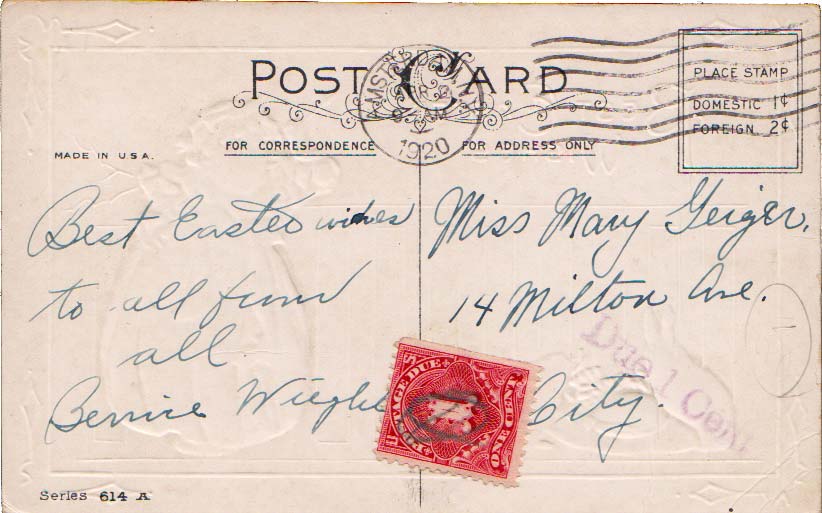 POST CARD
AMSTERDAM, N.Y.
1920
PLACE STAMP
DOMESTIC 1¢
FOREIGN 2¢
MADE IN U.S.A.
FOR CORRESPONDENCE
FOR ADDRESS ONLY
Best Easter wishes
to all from
all
Bernice
Miss Mary Geiger.
14 Milton Ave.
City.
Due 1 Cent
POSTAGE DUE
ONE CENT
Series 614 A